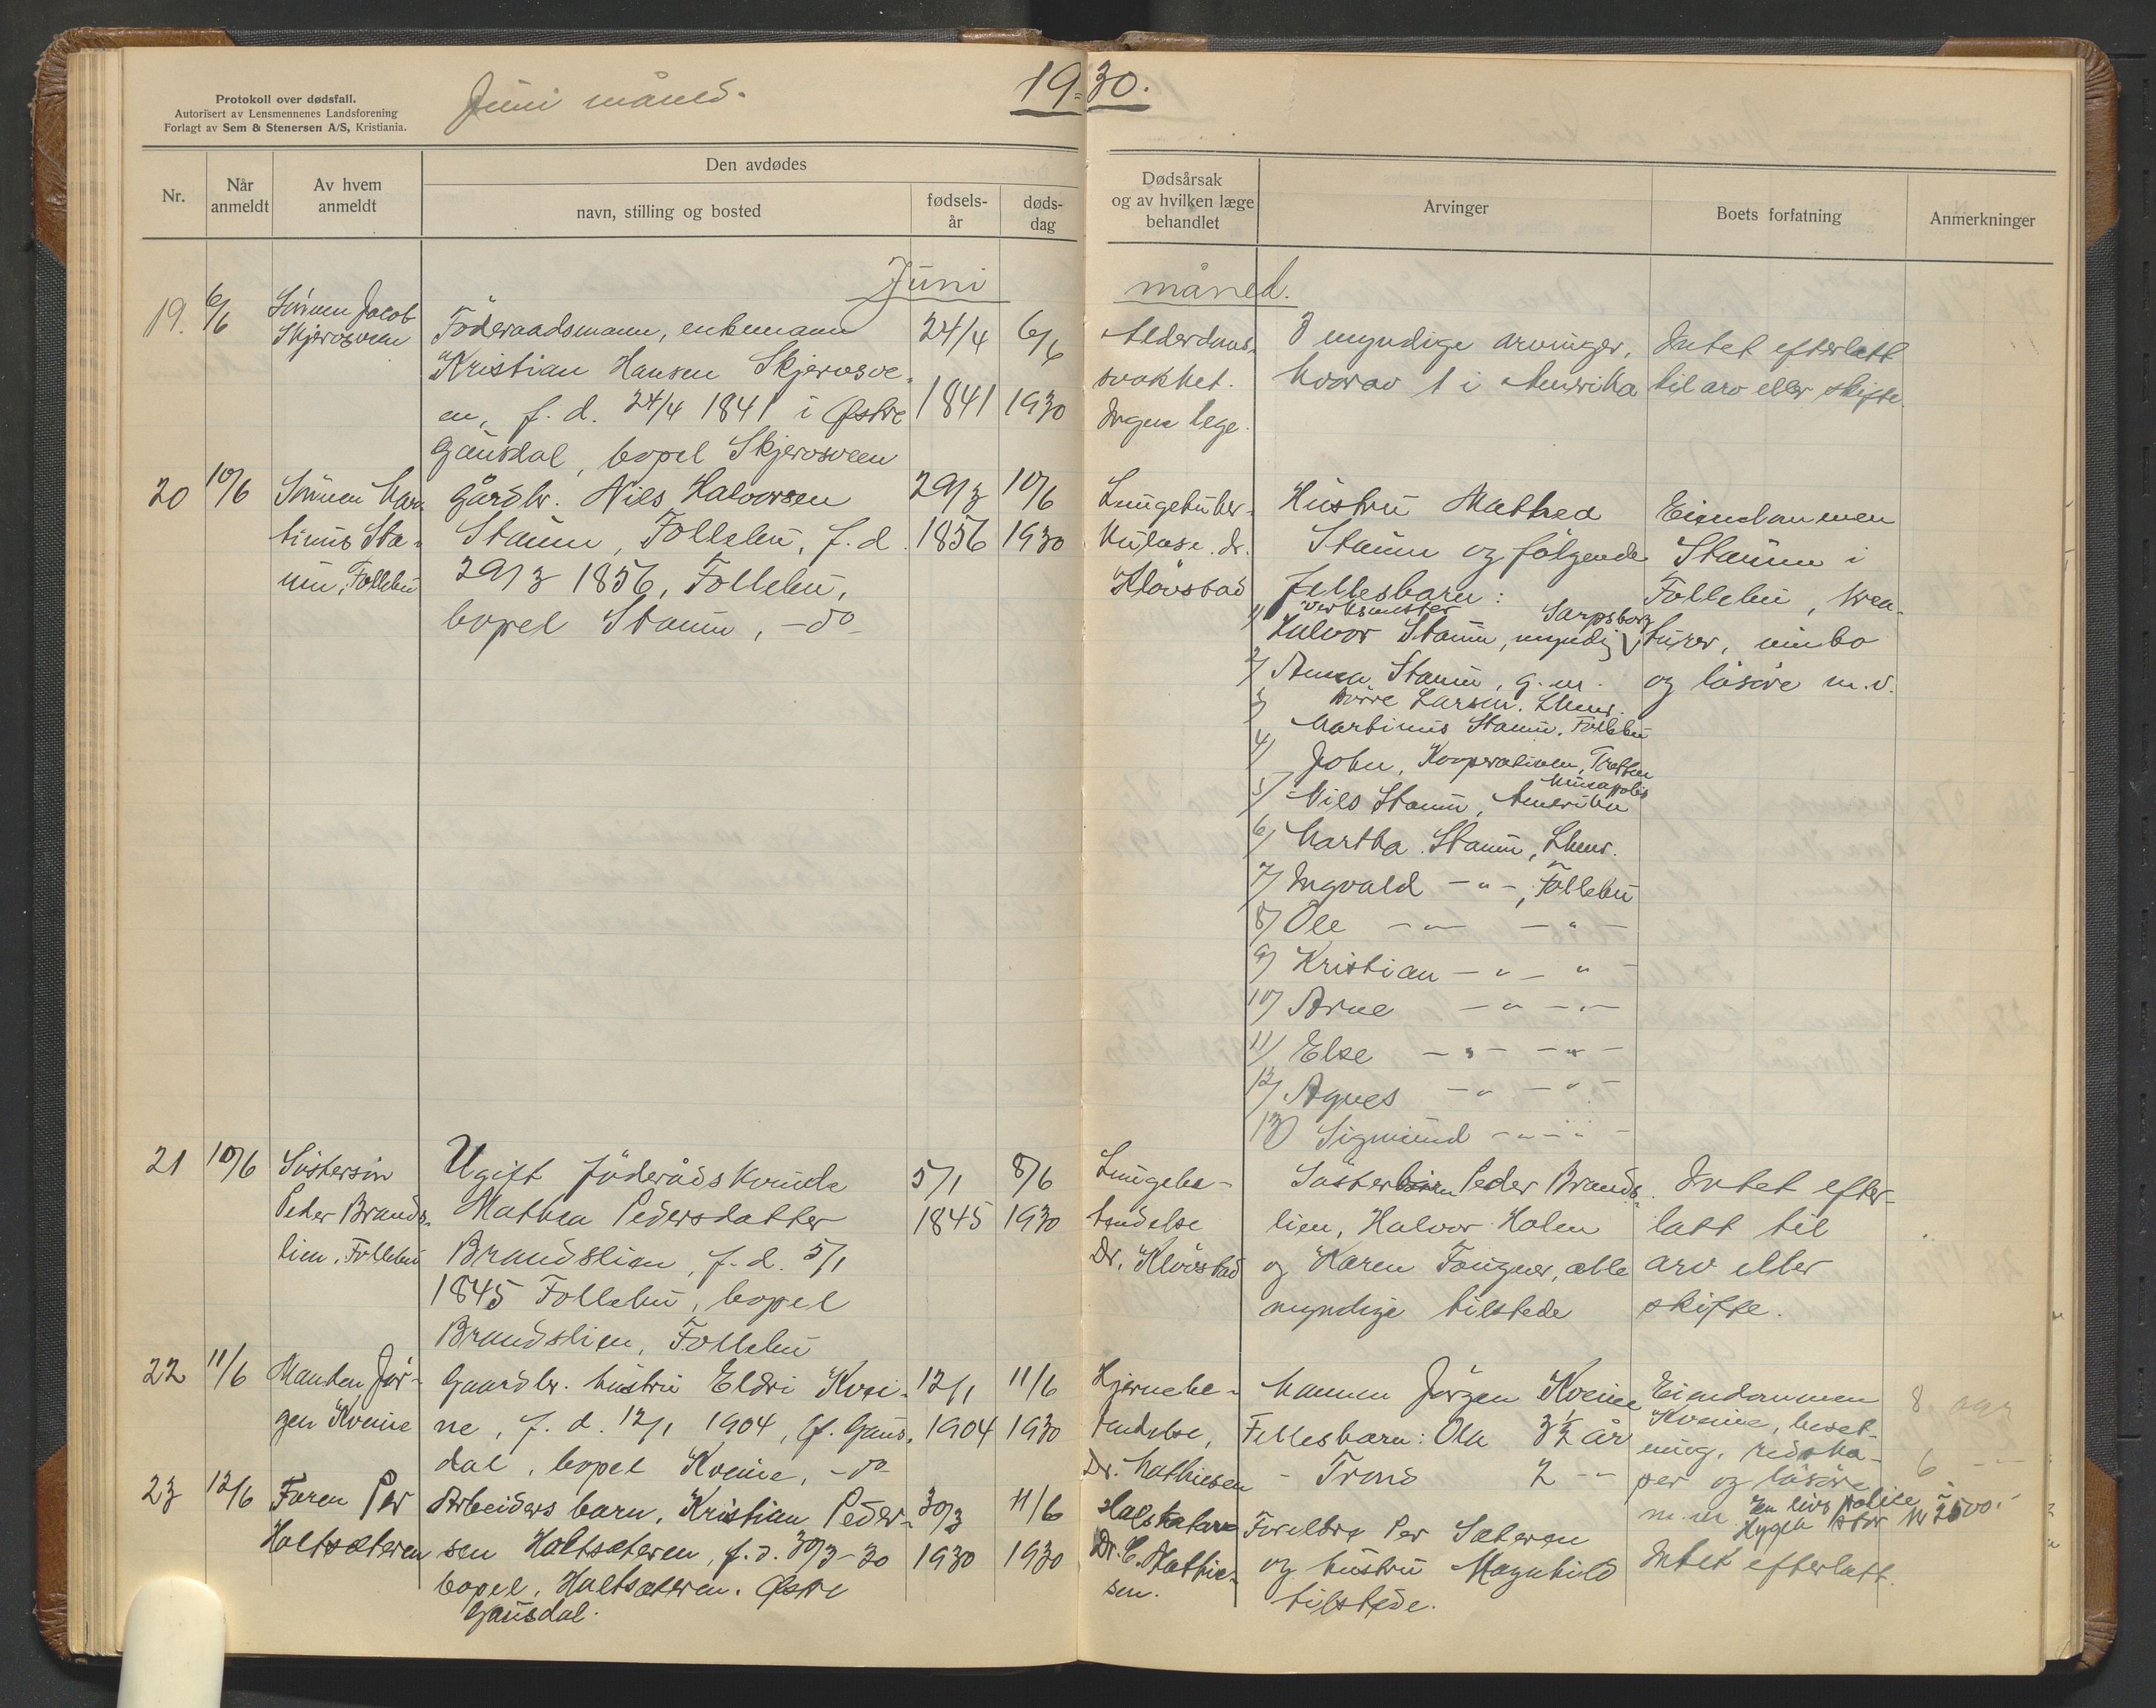 Protokoll over dødsfall.
Autorisert av Lensmennenes Landsforening
Forlagt av Sem & Stenersen A/S, Kristiania.
Juni måned.
19=30.
Nr.
Når
anmeldt
Av hvem
anmeldt
Den avdødes
navn, stilling og bosted
fødsels-
år
døds-
dag
Dødsårsak
og av hvilken læge
behandlet
Arvinger
Boets forfatning
Anmerkninger
Juni måned.
19.
6/6
Sönnen Jacob
Skjerosveen
Föderaadsmann, enkemann
Kristian Hansen Skjerosve-
en, f. d. 24/4 1841 i Østre
Gausdal, bopel Skjerosveen
24/4
1841
6/6
1930
Alderdoms-
svakhet.
Ingen lege.
3 myndige arvinger,
hvorav 1 i Amerika
Intet efterlatt
til arv eller skifte.
20
10/6
Sönnen Mar-
tinus Sta-
um, Follebu
Gårdbr. Nils Halvorsen
Staum, Follebu, f. d.
29/3 1856, Follebu,
bopel Staum, -do-
29/3
1856
10/6
1930
Lungetuber-
kulose. dr.
Klövstad
Hustru Mathea
Staum og fölgende
Fellesbarn:
verksmester
Sarpsborg
1/ Halvor Staum, myndig
2/ Anna Staum, g. m.
Börre Larsen, Lhmr.
3/ Martinus Staum, Follebu
4/ John, Kooperativen, Tretten
Mineapolis
5/ Nils Staum, Amerika
6/ Martha Staum, Lhmr.
7/ Ingvald - " -, Follebu
8/ Ole - " - - " -
9/ Kristian - " - " -
10/ Arne - " - " -
11/ Else - " - - " -
12/ Agnes - " - " -
13/ Sigmund - " - " -
Eiendommen
Staum i
Follebu, krea-
turer, innbo
og lösöre m. v.
21
10/6
Söstersön
Peder Brands-
lien, Follebu
Ugift föderådskvinde
Mathea Pedersdatter
Brandslien, f. d. 5/1
1845 Follebu, bopel
Brandslien, Follebu
5/1
1845
8/6
1930
Lungebe-
tendelse
Dr. Klövstad
Sösterbarn Peder Brands-
lien, Halvor Holen
og Karen Fougner, alle
myndige tilstede
Intet efter-
latt til
arv eller
skifte.
22
11/6
Manden Jör-
gen Kveine
Gaardbr. hustru Eldri Kvei-
ne, f. d. 12/1 1904, Ø. Gaus-
dal, bopel Kveine, -do-
12/1
1904
11/6
1930
Hjernebe-
tendelse,
Dr. Mathiesen
Mannen Jörgen Kveine
Fellesbarn: Ola 3½ år
- Trond 2 - " -
Eiendommen
Kveine, beset-
ning, redska-
per og lösöre
m. m. En livspolice i
Hygea stor kr 2500.-
8 aar
6 - " -
23
12/6
Faren Per
Holtsæteren
Arbeiders barn, Kristian Peder-
sen Holtsæteren, f. d. 30/3-30
bopel, Holtsæteren. Østre
Gausdal.
30/3
1930
11/6
1930
Halskatarr
Dr. C. Mathie-
sen.
Foreldre Per Sæteren
og hustru Magnhild
tilstede.
Intet efterlatt.